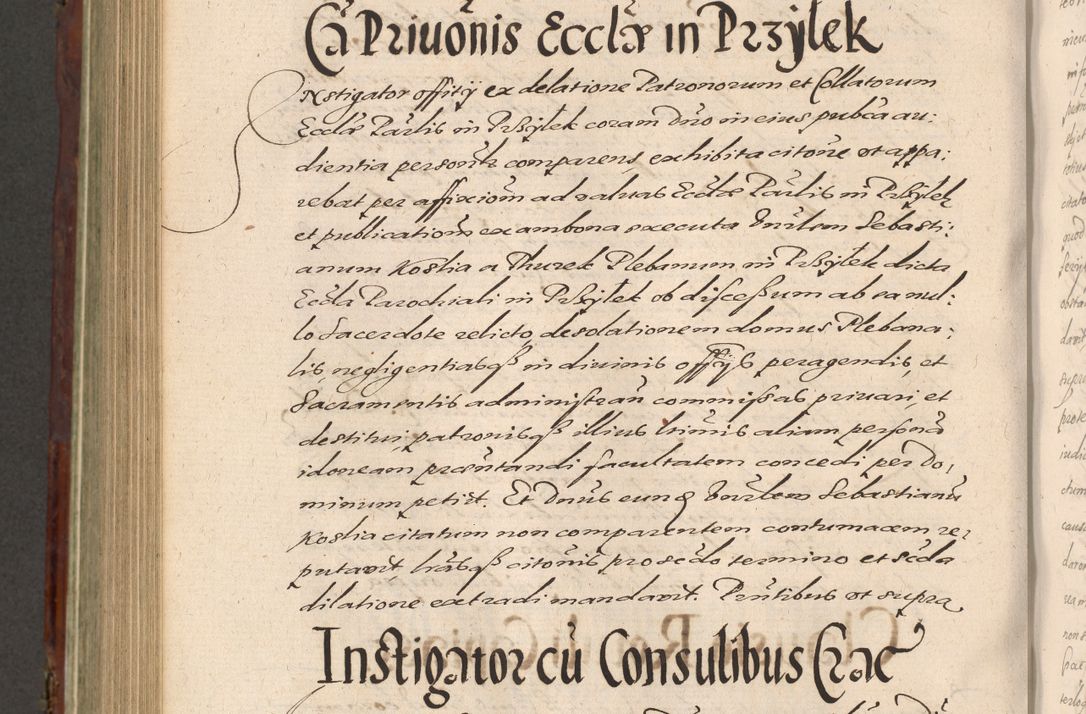 Cã Priuõnis Ecclæ in Przÿłek
INstigator offitÿ ex delatione Patronorum et Collatorum
Ecclæ Parlis in Przÿłek coram Dno in eius pubca au:
dientia personlr comparens, exhibita citone vt appa:
rebat per affixiom ad valuas Ecclæ Parlis in Przÿłek
et publicationē ex ambona executa Vnrlem Sebasti:
anum Koslia a Thurek Plebanum in Przÿłek dicta
Eccla Parochiali in Przÿłek ob discessum ab ea nul:
lo Sacerdote relicto, desolationem domus Plebana:
lis, negligentiasqȝ in diuinis offÿs peragendis, et
Sacramentis administran commissas priuari, et
destitui, patronisqȝ illius ltimis aliam personã
idoneam præsntandi facultatem concedi per Do,
minum petÿt. Et Dnus eunq Vnrlem Sebastianũ
Koslia citatum non comparentem contumacem re:
putauit lrasqȝ citonis pro scdo termino et scda
dilatione extradi mandauit. Pntibus vt supra
Instigator cũ Consulibus Crac